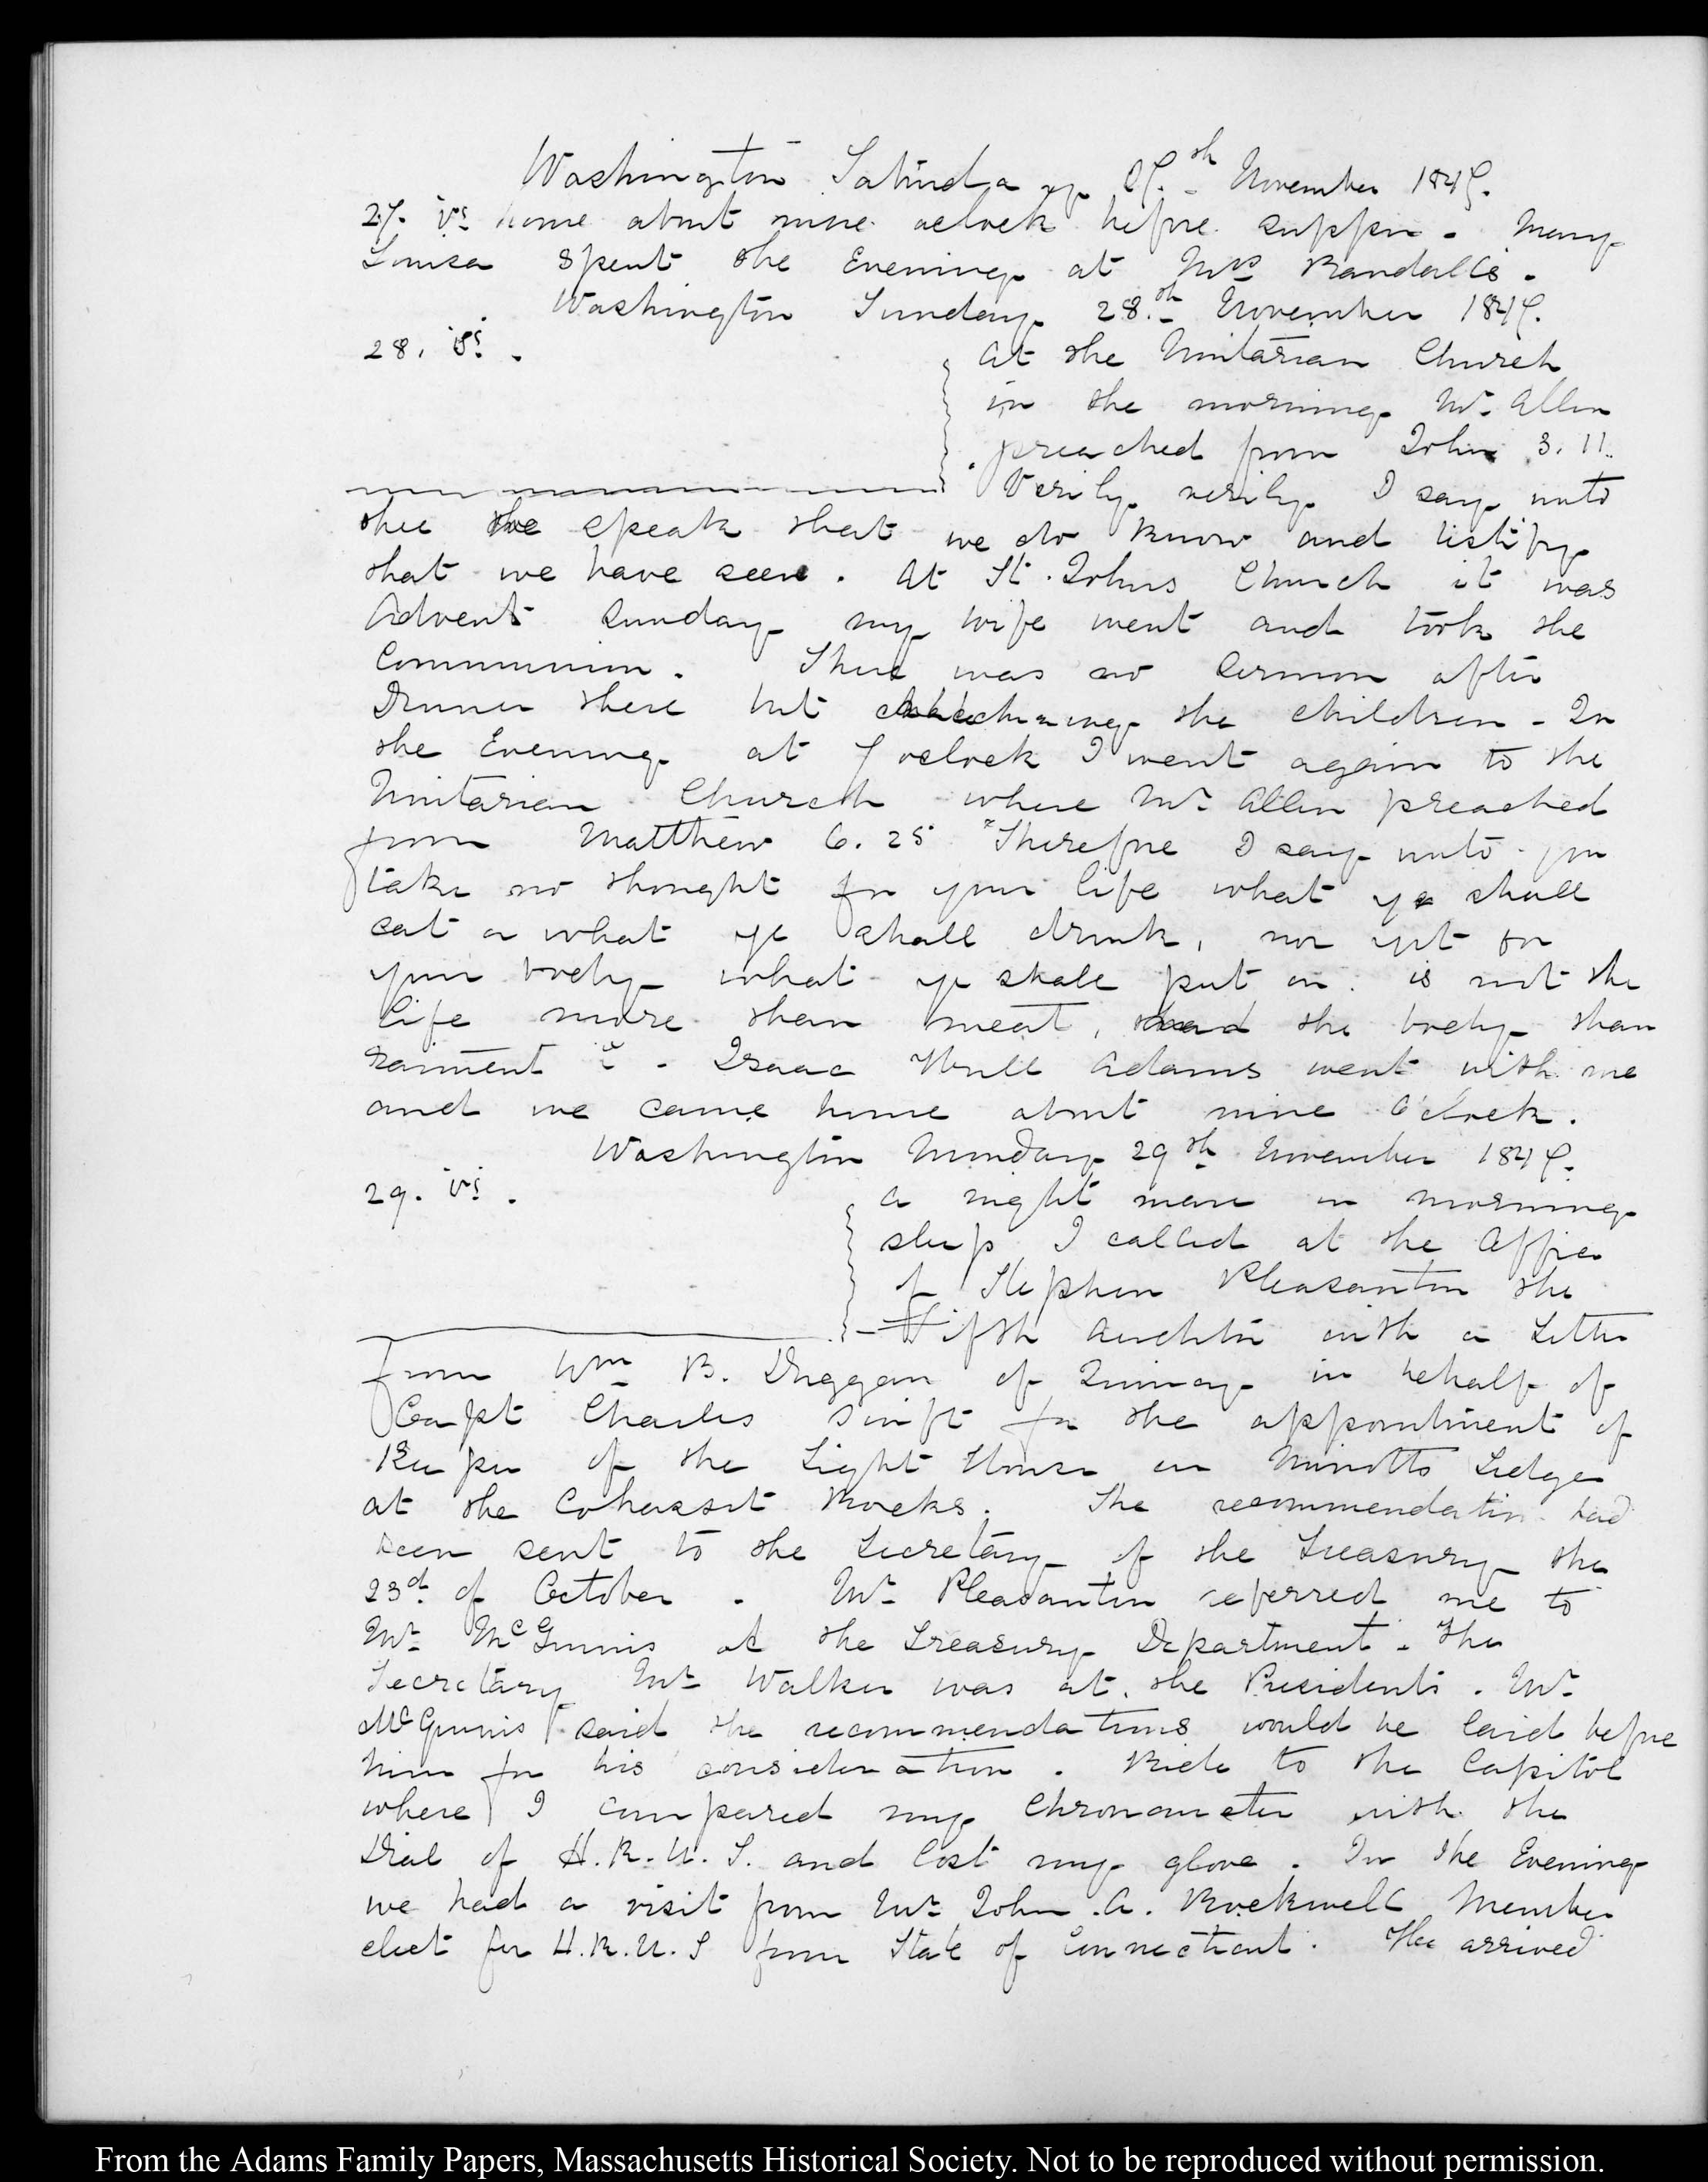 Washington Saturday 27.th November 1847.
27. VI. home about nine oclock before supper. Mary
Louisa spent the Evening at Mrs Randall's.
Washington Sunday 28.th November 1847.
28. VI.
At the Unitarian Church
in the morning Mr. Allen
preached from John 3. 11.
Verily verily I say unto
thee We speak that we do know and testify
that we have seen. At St. Johns Church it was
Advent Sunday my wife went and took the
Communion. There was no Sermon after
Dinner there but the children. In
the Evening at 7 oclock I went again to the
Unitarian Church where Mr. Allen preached
from Matthew 6. 25 "Therefore I say unto you
take no thought for your life what ye shall
eat or what ye shall drink, nor yet for
your body what ye shall put on. is not the
life more than meat, and the body than
raiment" - Isaac Hull Adams went with me
and we came home about nine O'clock.
Washington Monday 29th November 1847.
29. VI.
A night mare in morning
sleep I called at the Office
of Stephen Pleasanton the
Fifth Auditor with a Letter
from Wm B. Duggan of Quincy in behalf of
Capt Charles Swift for the appointment of
Keeper of the Light House on Minotts Ledge
at the Cohasset Rocks. The recommendation had
been sent to the Secretary of the Treasury the
23d of October. Mr. Pleasanton referred me to
Mr. McGinnis at the Treasury Department. The
Secretary Mr Walker was at the Presidents. Mr.
McGinnis said the recommendations would be laid before
him for his consideration. Ride to the Capitol
where I compared my Chronometer with the
Dial of H.R.U.S. and lost my glove. In the Evening
we had a visit from Mr. John A. Rockwell Member
elect for H.R.U.S from State of Connecticut. He arrived
From the Adams Family Papers, Massachusetts Historical Society. Not to be reproduced without permission.